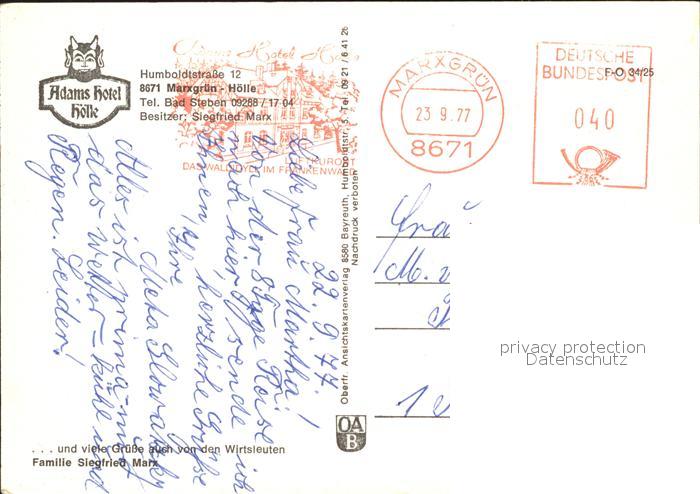 Adams Hotel
Hölle
Humboldtstraße 12
8671 Marxgrün - Hölle
Tel. Bad Steben 09288 / 17 04
Besitzer: Siegfried Marx
LUFTKURORT
DAS WALDIDYLL IM FRANKENWALD
MARXGRÜN
23 9.77
8671
DEUTSCHE
BUNDESPOST
F-O 34/25
040
22. 9. 77
Liebe Frau Martha!
Von der 8 Tage Reise
hier sende ich
Ihnen herzliche Grüße
Ihre
Meta
Alles ist prima - nur
das Wetter - kühl und
Regen. Leider!
Oberfr. Ansichtskartenverlag 8580 Bayreuth, Humboldtstr. 5, Tel. 09 21 / 6 41 26
Nachdruck verboten
OA
B
. . . und viele Grüße auch von den Wirtsleuten
Familie Siegfried Marx
privacy protection
Datenschutz